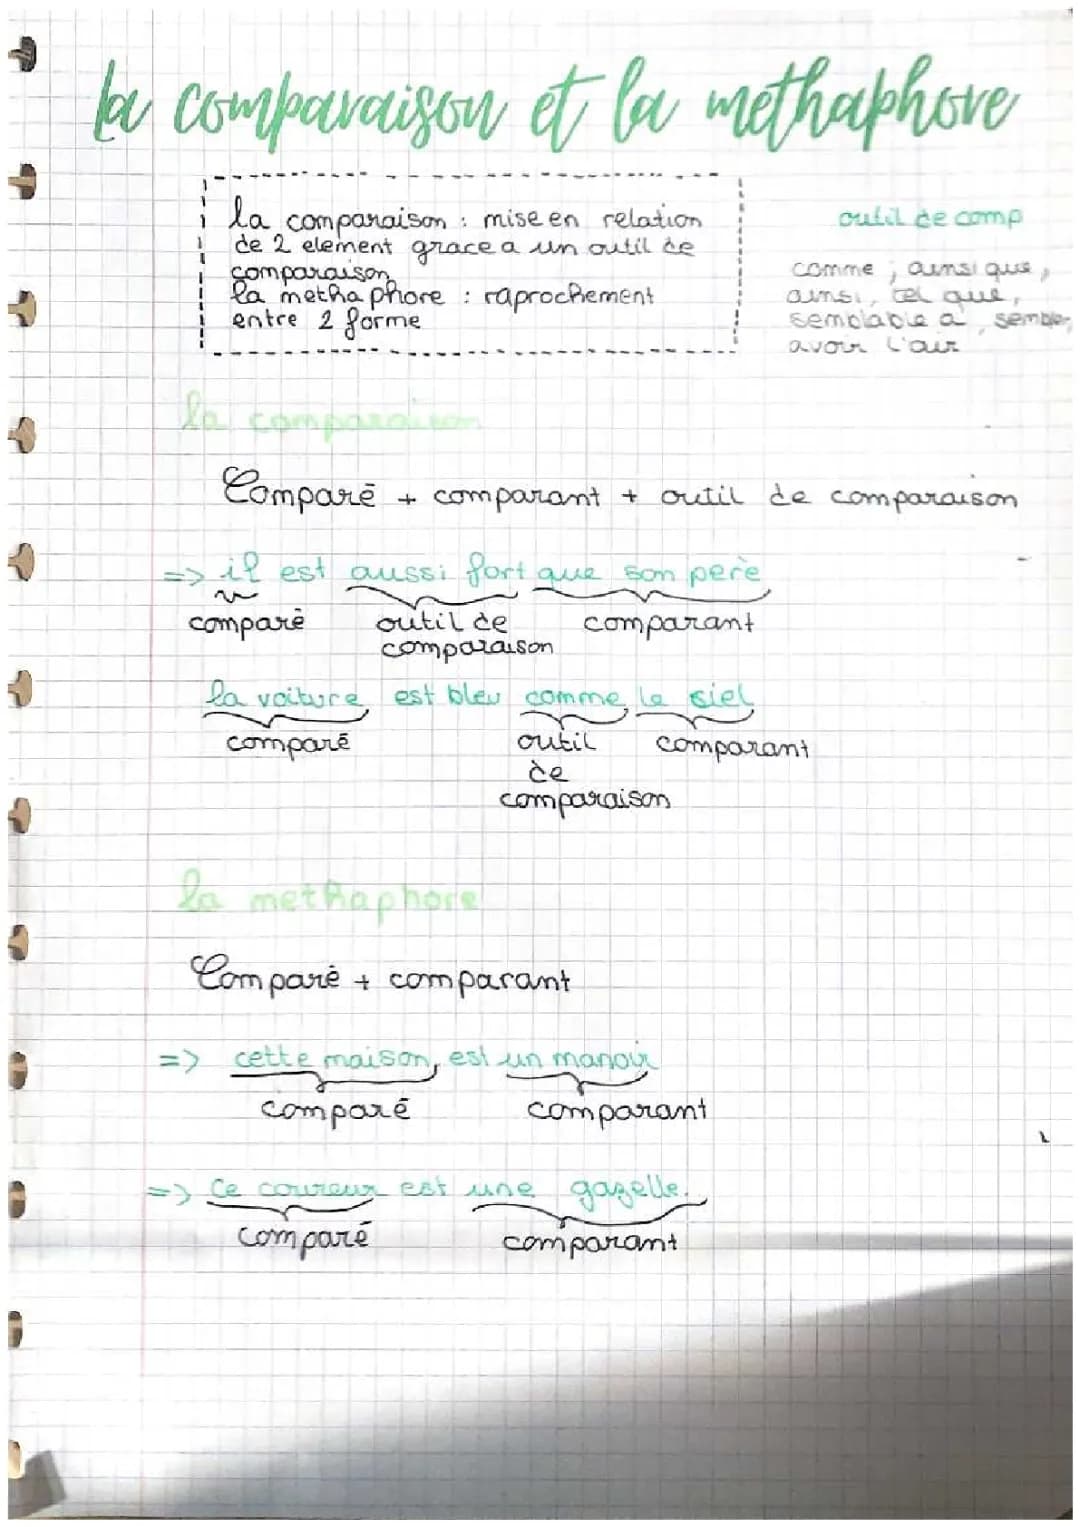 la comparaison et la methaphore
la comparaison : mise en relation
de 2 element grace a un outil de
comparaison
la methaphore : raprochement
entre 2 forme
outil de comp
comme, ainsi que,
ainsi, tel que,
semblable a, sembler,
avoir l'air
la comparaison
Comparé + comparant + outil de comparaison
=> il est aussi fort que son père
comparé outil de comparant
comparaison
la voiture est bleu comme le siel
comparé outil comparant
de
comparaison
la methaphore
Comparé + comparant
=> cette maison est un manoir
comparé comparant
=> Ce coureur est une gazelle.
comparé comparant